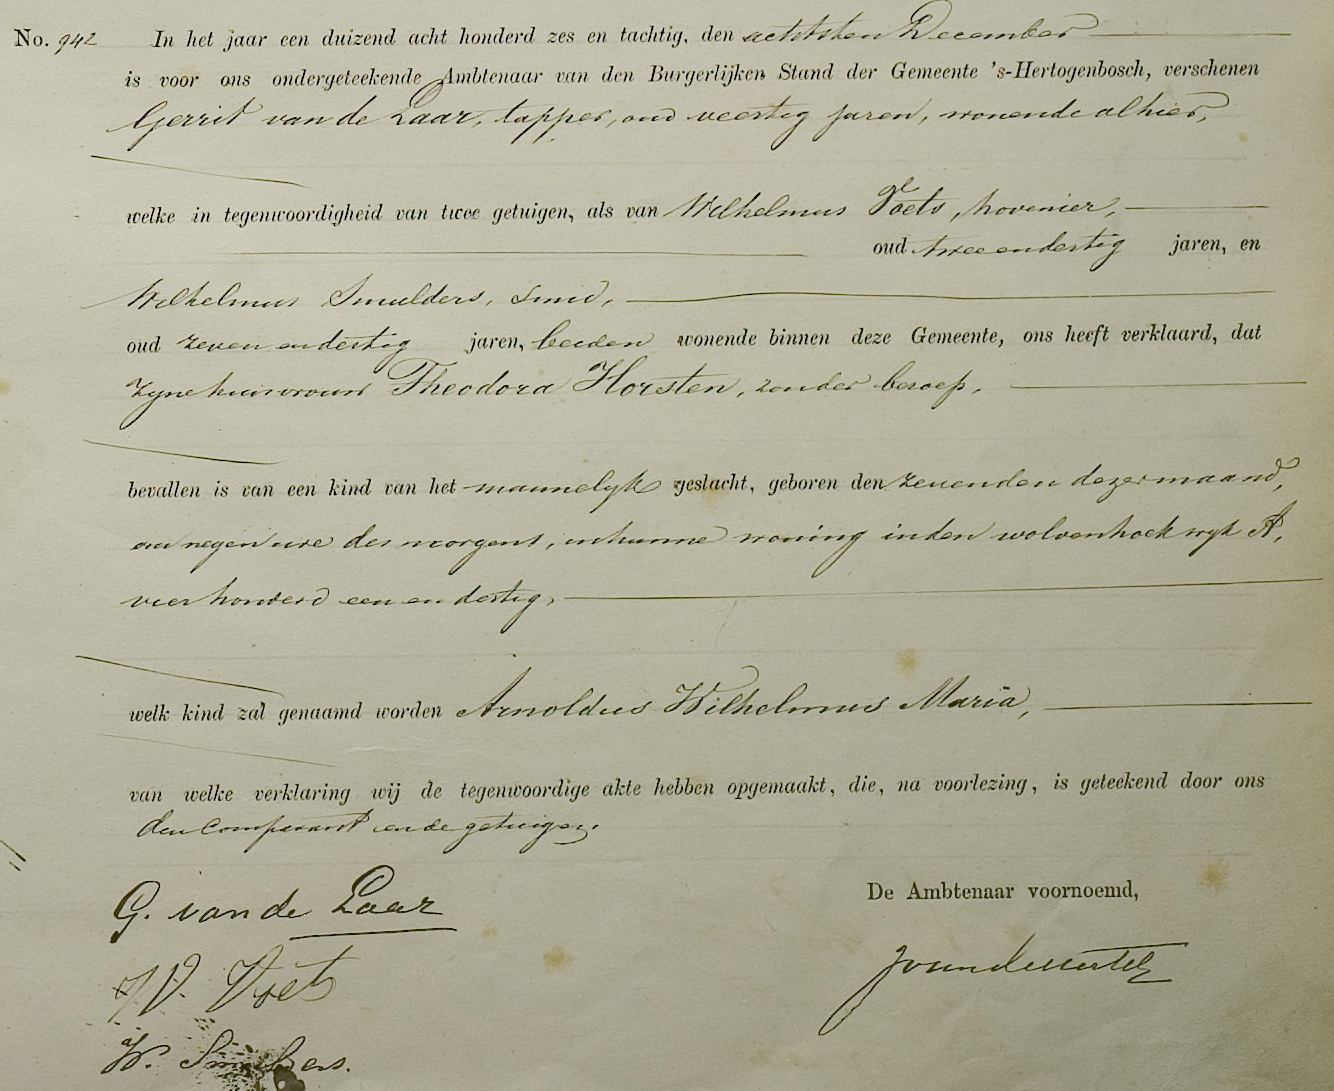 No. 942 In het jaar een duizend acht honderd zes en tachtig, den achtsten December
is voor ons ondergeteekende Ambtenaar van den Burgerlijken Stand der Gemeente 's-Hertogenbosch, verschenen
Gerrit van de Laar, tapper, oud veertig jaren, wonende alhier,
welke in tegenwoordigheid van twee getuigen, als van Wilhelmus Voets, hovenier,
oud twee en dertig jaren, en
Wilhelmus Smulders, smid,
oud zeven en dertig jaren, beiden wonende binnen deze Gemeente, ons heeft verklaard, dat
zyne huisvrouw Theodora Horsten, zonder beroep,
bevallen is van een kind van het mannelyk geslacht, geboren den zevenden dezer maand,
om negen ure des morgens, in hunne woning in den wolvenhoek wyk A,
vier honderd een en dertig,
welk kind zal genaamd worden Arnoldus Wilhelmus Maria,
van welke verklaring wij de tegenwoordige akte hebben opgemaakt, die, na voorlezing, is geteekend door ons
den comparant en de getuigen.
De Ambtenaar voornoemd,
G. van de Laar
W. Voets
W. Smulders.